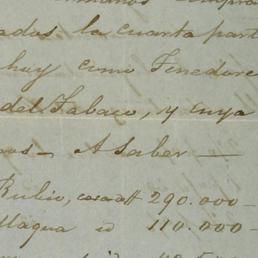 ados la cuarta part
hoy como Tenedore
del Tabaco, y cuya
A Saber —
Rubio, casa de 290.000 —
Magua id 110.000 —